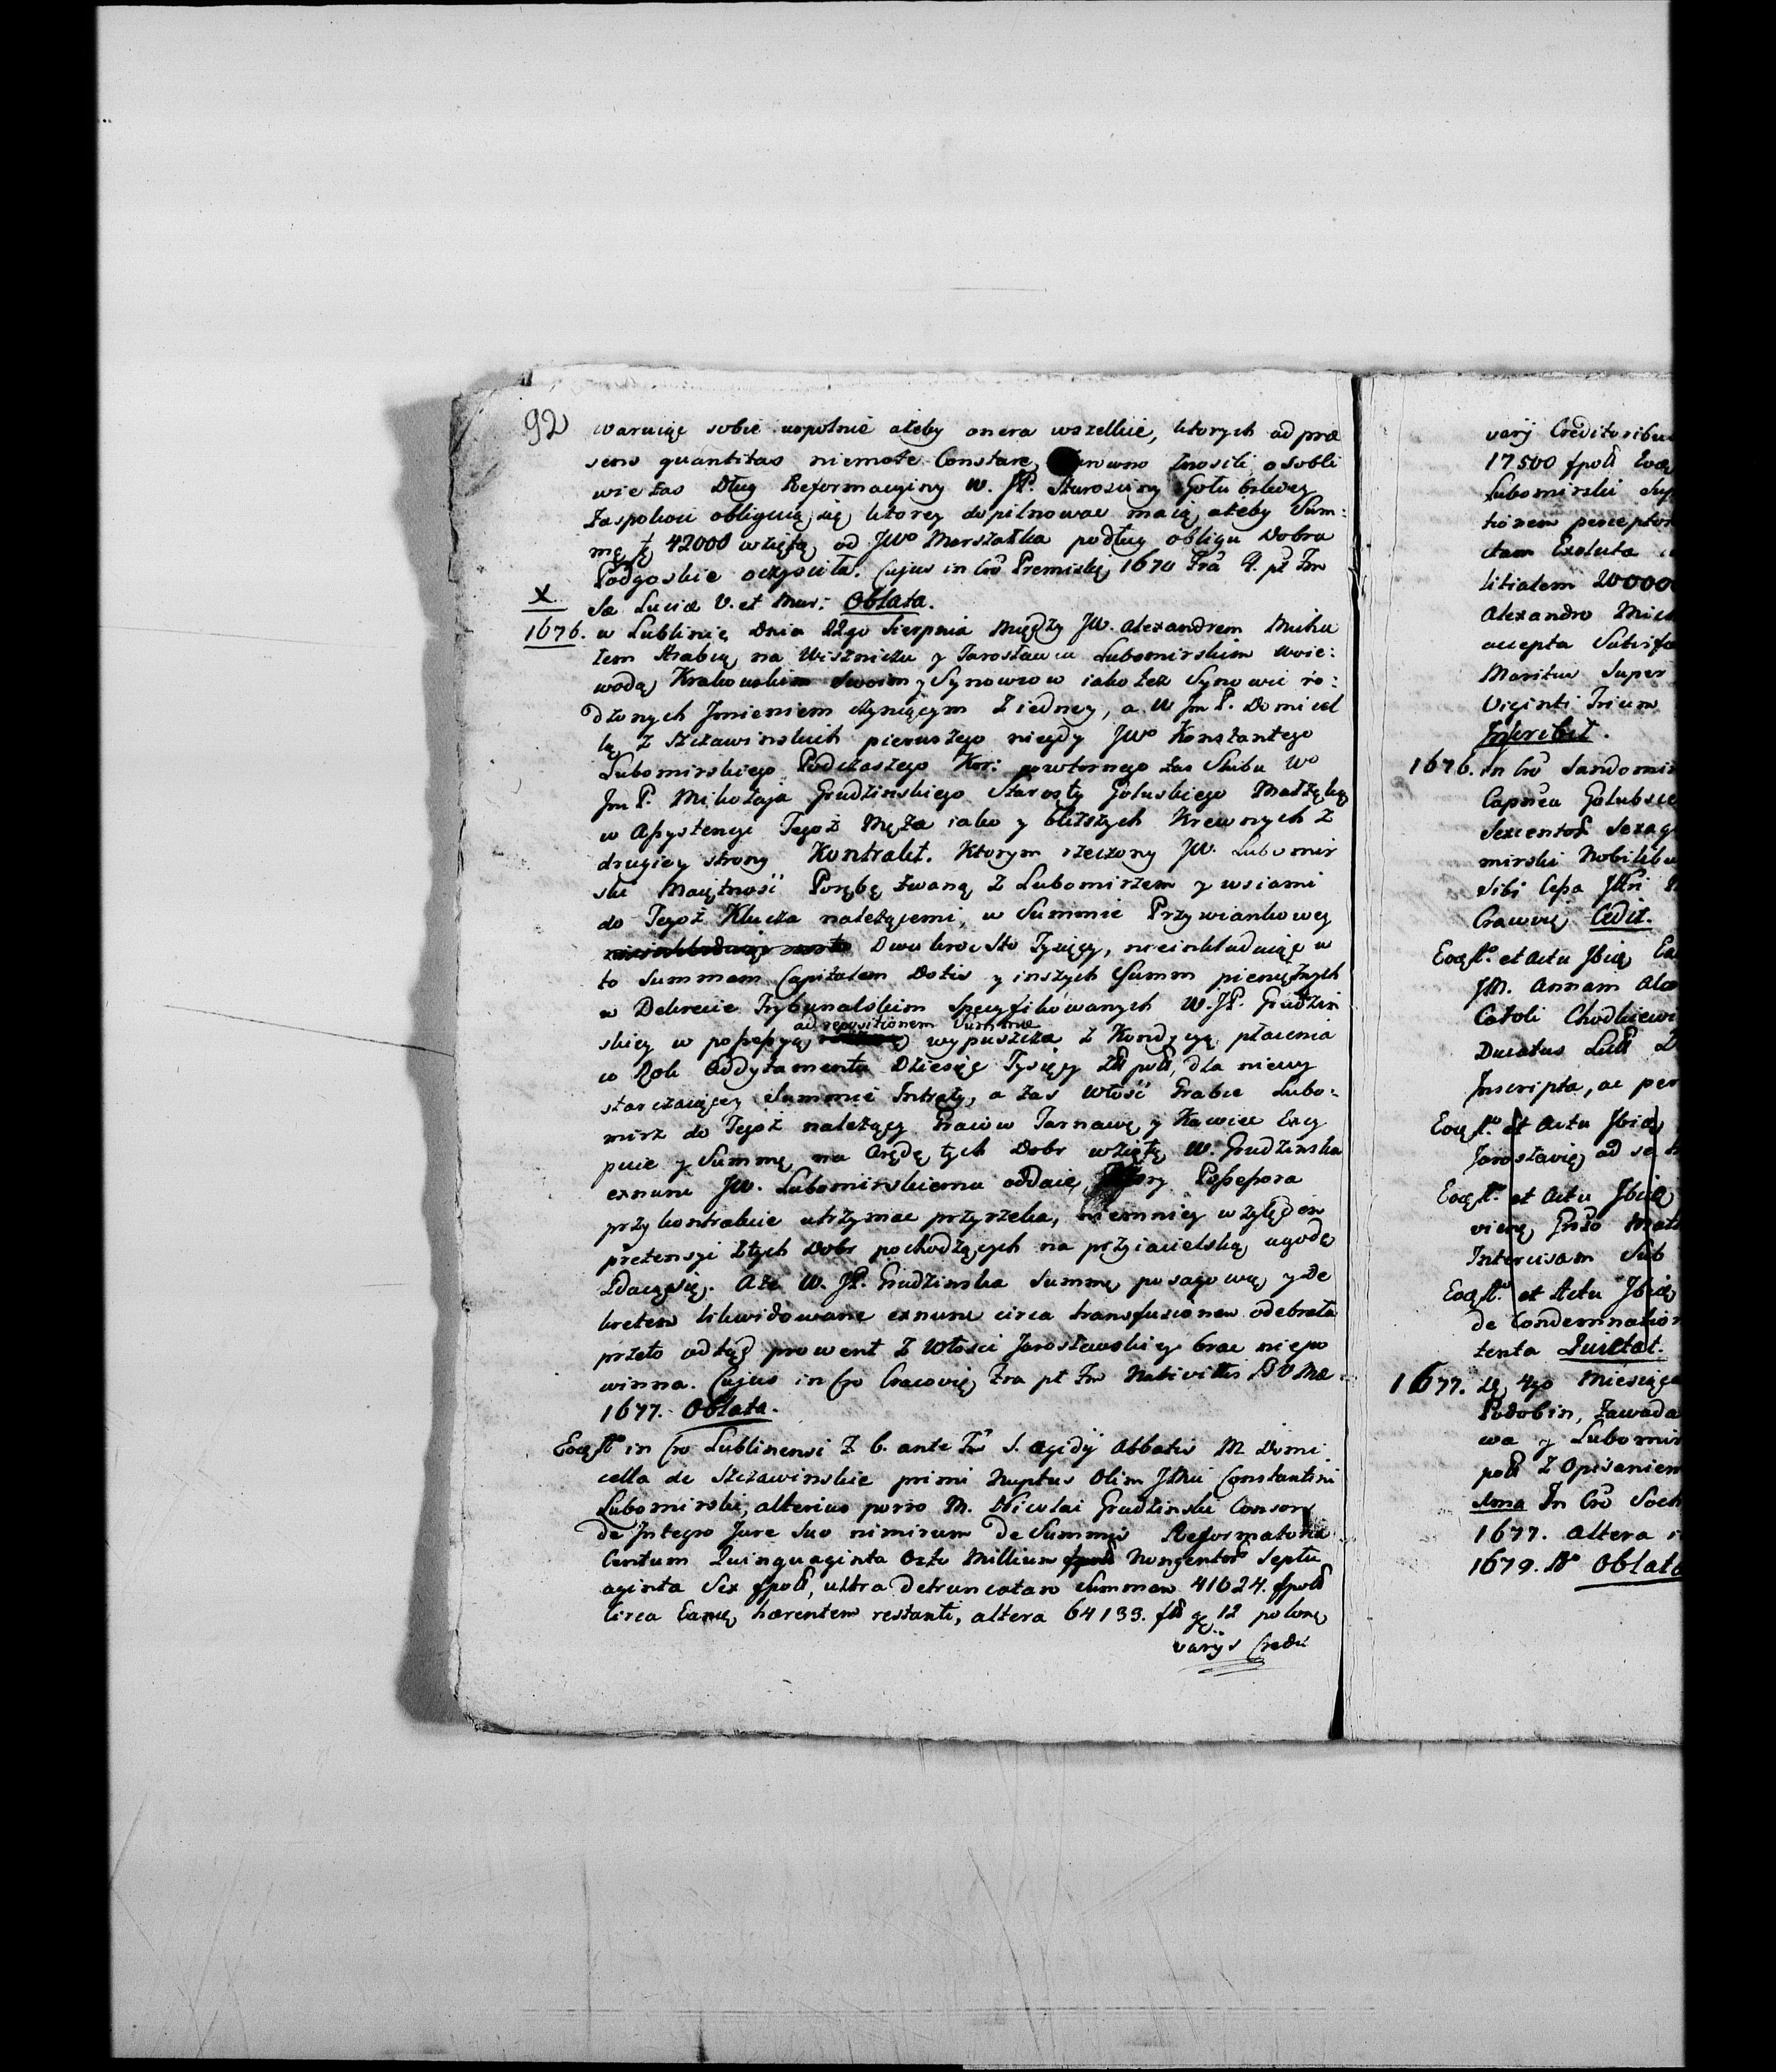 92
waruiąc sobie uspolnie ażeby onera wszelkie, ktorych ad præ
sens quantitas niemoże Constare, rowno znosili, osobli
wie zas Dług Reformacyiny W. JP. Starosciny Golubskiey
zaspokoic obliguią się ktorzy dopilnować maią ażeby Sum:
mę 42000 wziętą od JWo Marszałka podług obligu Dobra
Podgoskie oczyściła. Cujus in Cro Premislię 1670 Fra pt Fm
Sæ Luciæ V. et Mar: Oblata.
X
1676. w Lublinie Dnia 22go Sierpnia Między JW. Alexandrem Micha
łem Hrabią na Wiszniczu y Jarosławiu Lubomirskim woie:
wodą Krakowskim Swoim y Synowcow iako też Synowic ro:
dzonych Jmieniem czyniącym z iedney, a W Jm P. Domicel
lą z Szczawinskich pierwszego niegdy JWo Konstantego
Lubomirskiego Podczaszego Kor: powtornego zas Slubu Wo
Jm P. Mikołaja Grudzinskiego Starosty Golubskiego Małżąką
w Assystencyi Tegoż Męża iako y bliższych Krewnych z
drugiey strony Kontrakt. Ktorym rzeczony JW. Lubomir
ski Maiętność Porębę zwaną z Lubomirzem y wsiami
do Tegoż Klucza należącemi, w Summie Przywiankowey
Dwa kroc Sto Tysięcy, nieinkluduiąc w
to Summam Capitalem Dotis y inszych Summ pieniężnych
w Dekrecie Trybunalskim Specyfikowanych W. JP. Grudzin
ad repositionem Summæ
skiey w possessyą wypuszcza z Kondycyą płacenia
co Rok Addytamentu Dziesięć Tysięcy Zł pol, dla niewy
starczaiącey Summie Intraty, a zas włość Grabie Lubo:
mirz do Tegoż należący Graiow Tarnawę y Kawiec Excy
puie y Summę na Arędę tych Dobr wziętą W. Grudzinska
exnunc JW. Lubomirskiemu oddaie, Possesora
przy kontrakcie utrzymac przyrzeka, niemniey względem
pretensyi ztych Dobr pochodzących na przyiacielską ugodę
zdaią się. Aże W. JP. Grudzinska Summę posagową y De
kretem likwidowane exnunc circa transfusionem odebrała
przeto odtąd prowent z Włości Jarosławskiey brac niepo
winna. Cujus in Cro Cracovię Fra pt Fm Nativittis B V Mæ
1677. Oblata.
Eoq Ao in Cro Lublinensi F 6. ante Fm S. Ægidÿ Abbatis M. Domi
cella de Szczawinskie primi Nuptus Olim JMci Constantini
Lubomirski, alterius porro M. Nicolai Grudzinski Consors
de Integro Jure Suo nimirum de Summis Reformatoria
Centum Quinquaginta Octo Millium Nongentor Septu
aginta Sex fpoll, ultra detruncatam Summam 41624. fpoll
circa Eamę hærentem restanti, altera 64133. fll 12 polonę
varÿs Credi
varÿ Creditoribu
17500 fpoll
Lubomirski
tionem
ctam Exoluta
litialem 20000
Alexandro Mic
accepta
Maritus Super
Viginti Trium
Inscribit.
1676. in Cro Sandomi
Golubsc
Sexcentor
mirski Nobilibu
sibi
Cracovię Cedit.
Eoq Ao. et Actu Ibiq
JM. Annam
Caroli Chodkiewi
Ducatus
Inscripta, ac per
Eoq Ao. et Actu Ibiq
Jaroslavię ad se
Eoq Ao. et Actu Ibiq
Intercisam Sub
Eoq Ao. et Actu Ibiq
de Condemnation
tenta Quietat.
1677. 4go Miesiąca
Podobin, Zawada
wa y Lubomir
poll z Opisaniem
In Cro Soch
1677. altera
1679. Ao Oblata